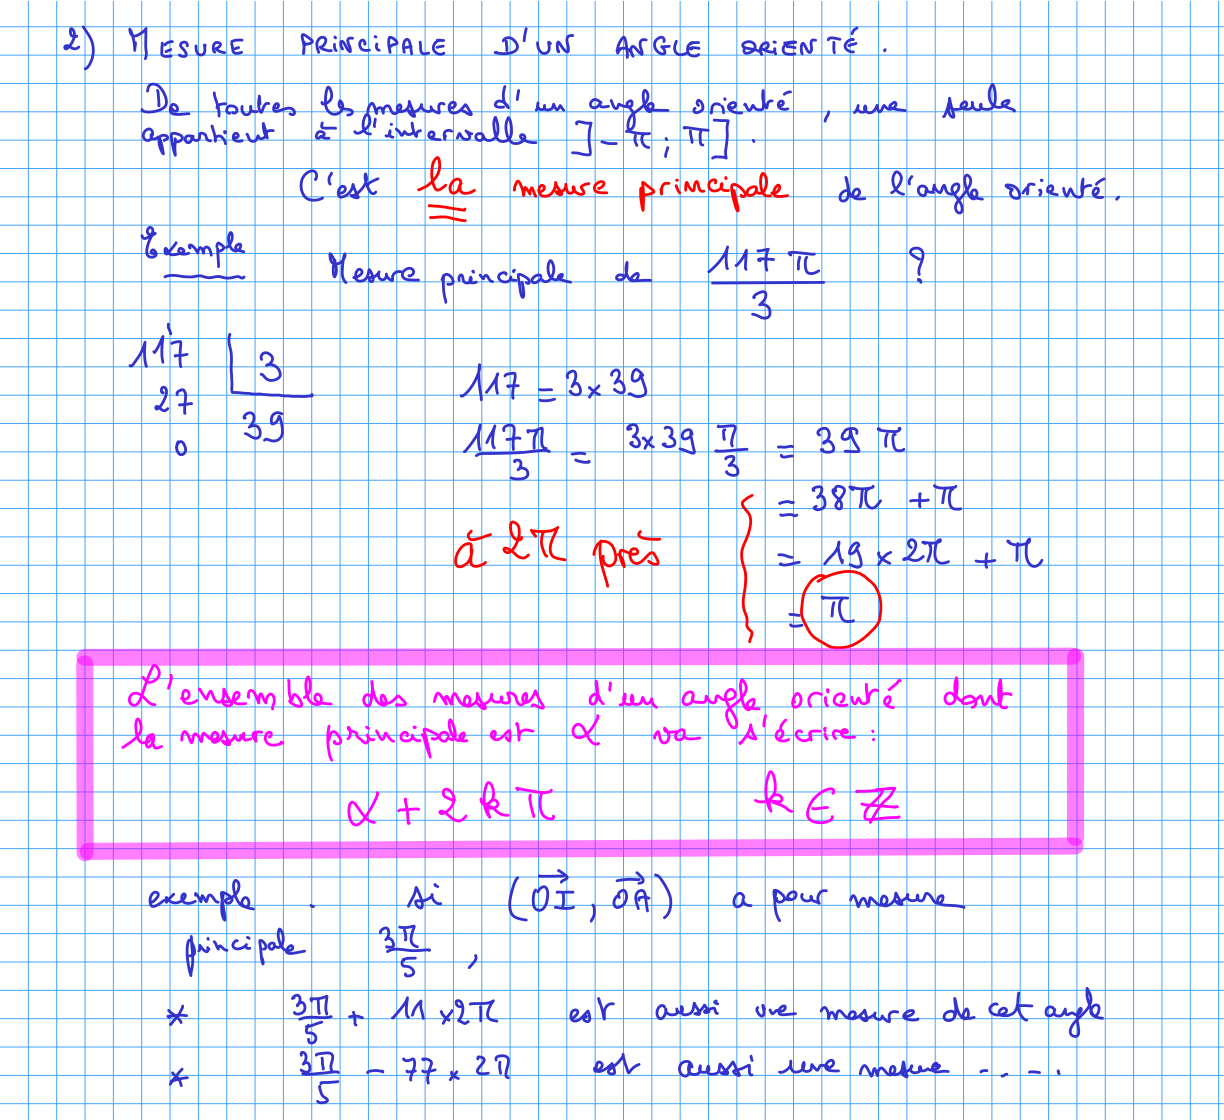 2) MESURE PRINCIPALE D'UN ANGLE ORIENTÉ.
De toutes les mesures d'un angle orienté, une seule
appartient à l'intervalle ]-π; π].
C'est la mesure principale de l'angle orienté.
Exemple Mesure principale de 117π/3 ?
117 | 3
27 39
0
117 = 3×39
117π/3 = 3×39 π/3 = 39π
= 38π + π
à 2π près = 19×2π + π
= π
L'ensemble des mesures d'un angle orienté dont
la mesure principale est α va s'écrire :
α + 2kπ k ∈ ℤ
exemple . si (OI→, OA→) a pour mesure
principale 3π/5 ,
* 3π/5 + 11×2π est aussi une mesure de cet angle
* 3π/5 - 77×2π est aussi une mesure ....